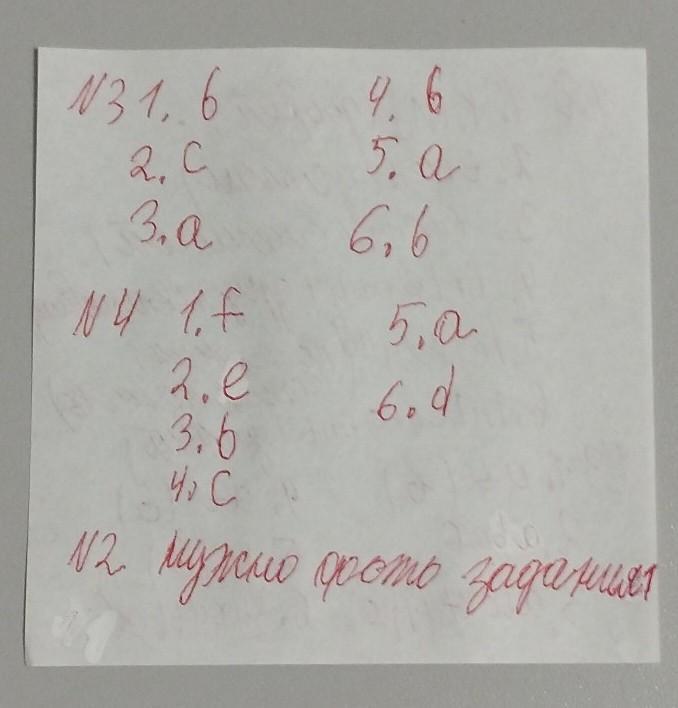 №3 1. b 4. b
2. c 5. a
3. a 6. b
№4 1. f 5. a
2. e 6. d
3. b
4. c
№2 нужно фото задания